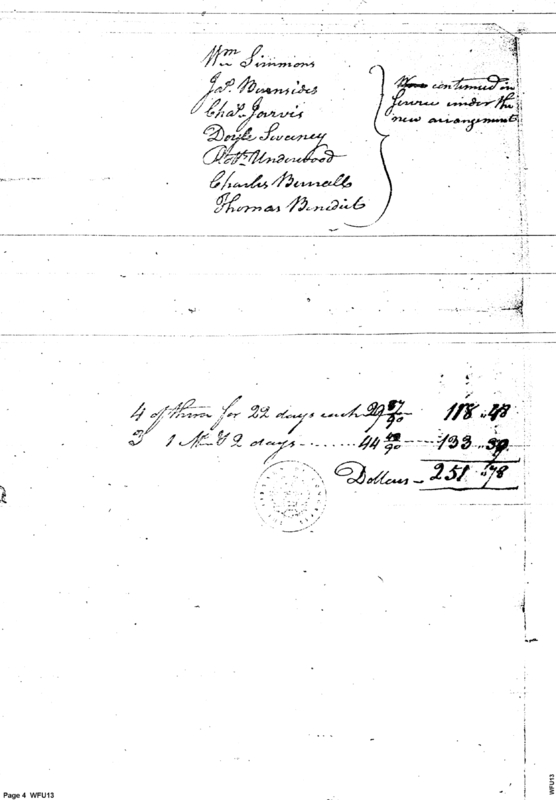 Wm Simmons
Jas. Burnsides
Chas. Jarvis
Doyle Sweeney
Underwood
Charles Burrall
Thomas Benedict
Were continued in
service under the
new arrangement
4 of them for 22 days each 29 57/90 118 .. 48
3 1 Mo. & 2 days ........ 44 42/90 133 .. 39
Dollars - 251 .. 78
Page 4 WFU13
WFU13